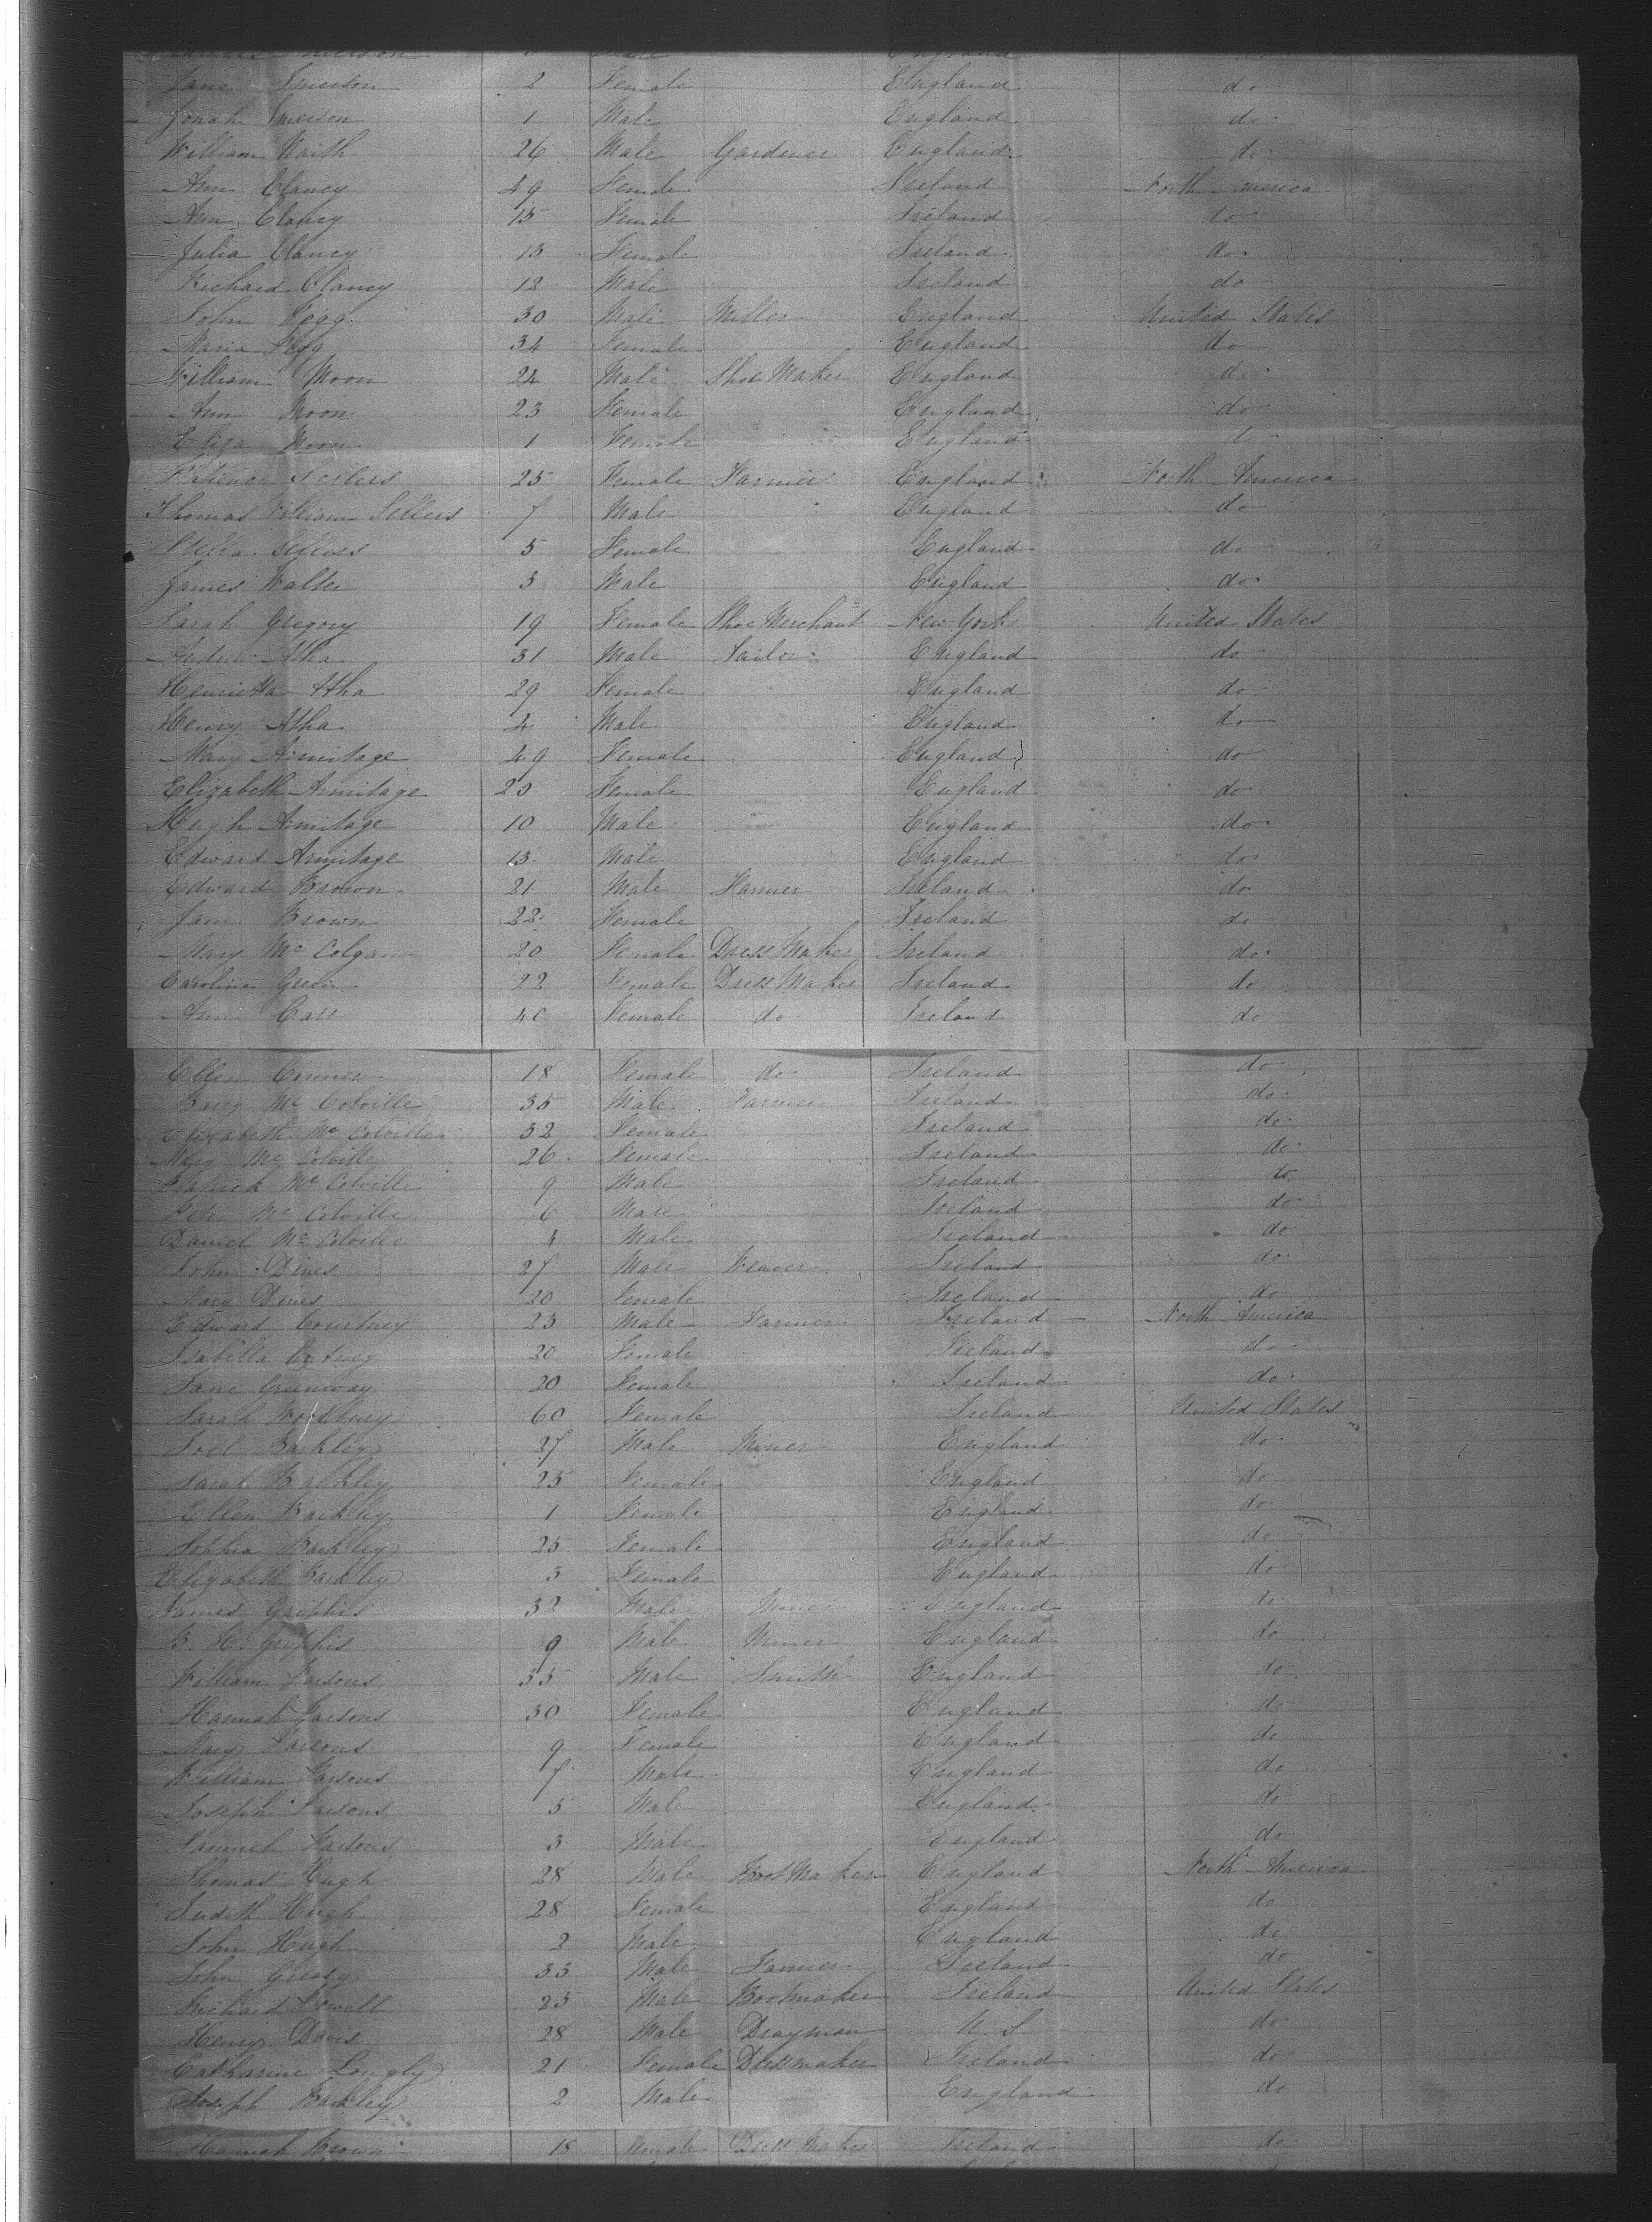 Jane Emerson 2 Female England do
Jonah Emerson 1 Male England do
William Naith 26 Male Gardener England do
Ann Clancy 49 Female Ireland North America
Ann Clancy 15 Female Ireland do
Julia Clancy 13 Female Ireland do
Richard Clancy 12 Male Ireland do
John Pegg 30 Male Miller England United States
Maria Pegg 34 Female England do
William Moon 24 Male Shoe Maker England do
Ann Moon 23 Female England do
Eliza Moon 1 Female England do
Patience Sellers 25 Female Farmer England North America
Thomas William Sellers 7 Male England do
Sellers 5 Female England do
James Walter 3 Male England do
Sarah Gregory 19 Female Shoe Merchant New York United States
Andrew Atha 31 Male Tailor England do
Henrietta Atha 29 Female England do
Henry Atha 4 Male England do
Mary Armitage 49 Female England do
Elizabeth Armitage 20 Female England do
Hugh Armitage 10 Male England do
Edward Armitage 13 Male England do
Edward Brown 21 Male Farmer Ireland do
Jane Brown 22 Female Ireland do
Mary Mc Colgan 20 Female Dress Maker Ireland do
Caroline Green 22 Female Dress Maker Ireland do
Ann Carr 40 Female do Ireland do
Ellen Conner 18 Female do Ireland do
Barry Mc Colville 35 Male Farmer Ireland do
Elizabeth Mc Colville 32 Female Ireland do
Mary Mc Colville 26 Female Ireland do
Mc Colville 9 Male Ireland do
Peter Mc Colville 6 Male Ireland do
Daniel Mc Colville 4 Male Ireland do
John Dines 27 Male Weaver Ireland do
Mary Dines 20 Female Ireland do
Edward Courtney 23 Male Farmer Ireland North America
Isabella 20 Female Ireland do
Jane Greenway 20 Female Ireland do
Sarah Woodbury 60 Female Ireland United States
Joel Barkley 27 Male Miner England do
Sarah Barkley 25 Female England do
Ellen Barkley 1 Female England do
Sophia Barkley 25 Female England do
Elizabeth Barkley 3 Female England do
James Griphis 32 Male Miner England do
B. H. Griphis 9 Male Miner England do
William Parsons 35 Male Smith England do
Hannah Parsons 30 Female England do
Mary Parsons 9 Female England do
William Parsons 7 Male England do
Joseph Parsons 5 Male England do
Samuel Parsons 3 Male England do
Thomas Hugh 28 Male Boot Maker England North America
Judith Hugh 28 Female England do
John Hugh 2 Male England do
John Greasy 33 Male Farmer Ireland do
Richard Powell 25 Male Bootmaker Ireland United States
Henry Davis 28 Male Drayman U. S. do
Catharine Longly 21 Female Dressmaker Ireland do
Joseph Barkley 2 Male England do
Hannah Brown 18 Female Dress Maker Ireland do